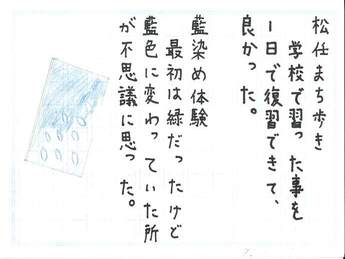 松任まち歩き
学校で習った事を
1日で復習できて、
良かった。
藍染め体験
最初は緑だったけど
藍色に変わっていた所
が不思議に思った。